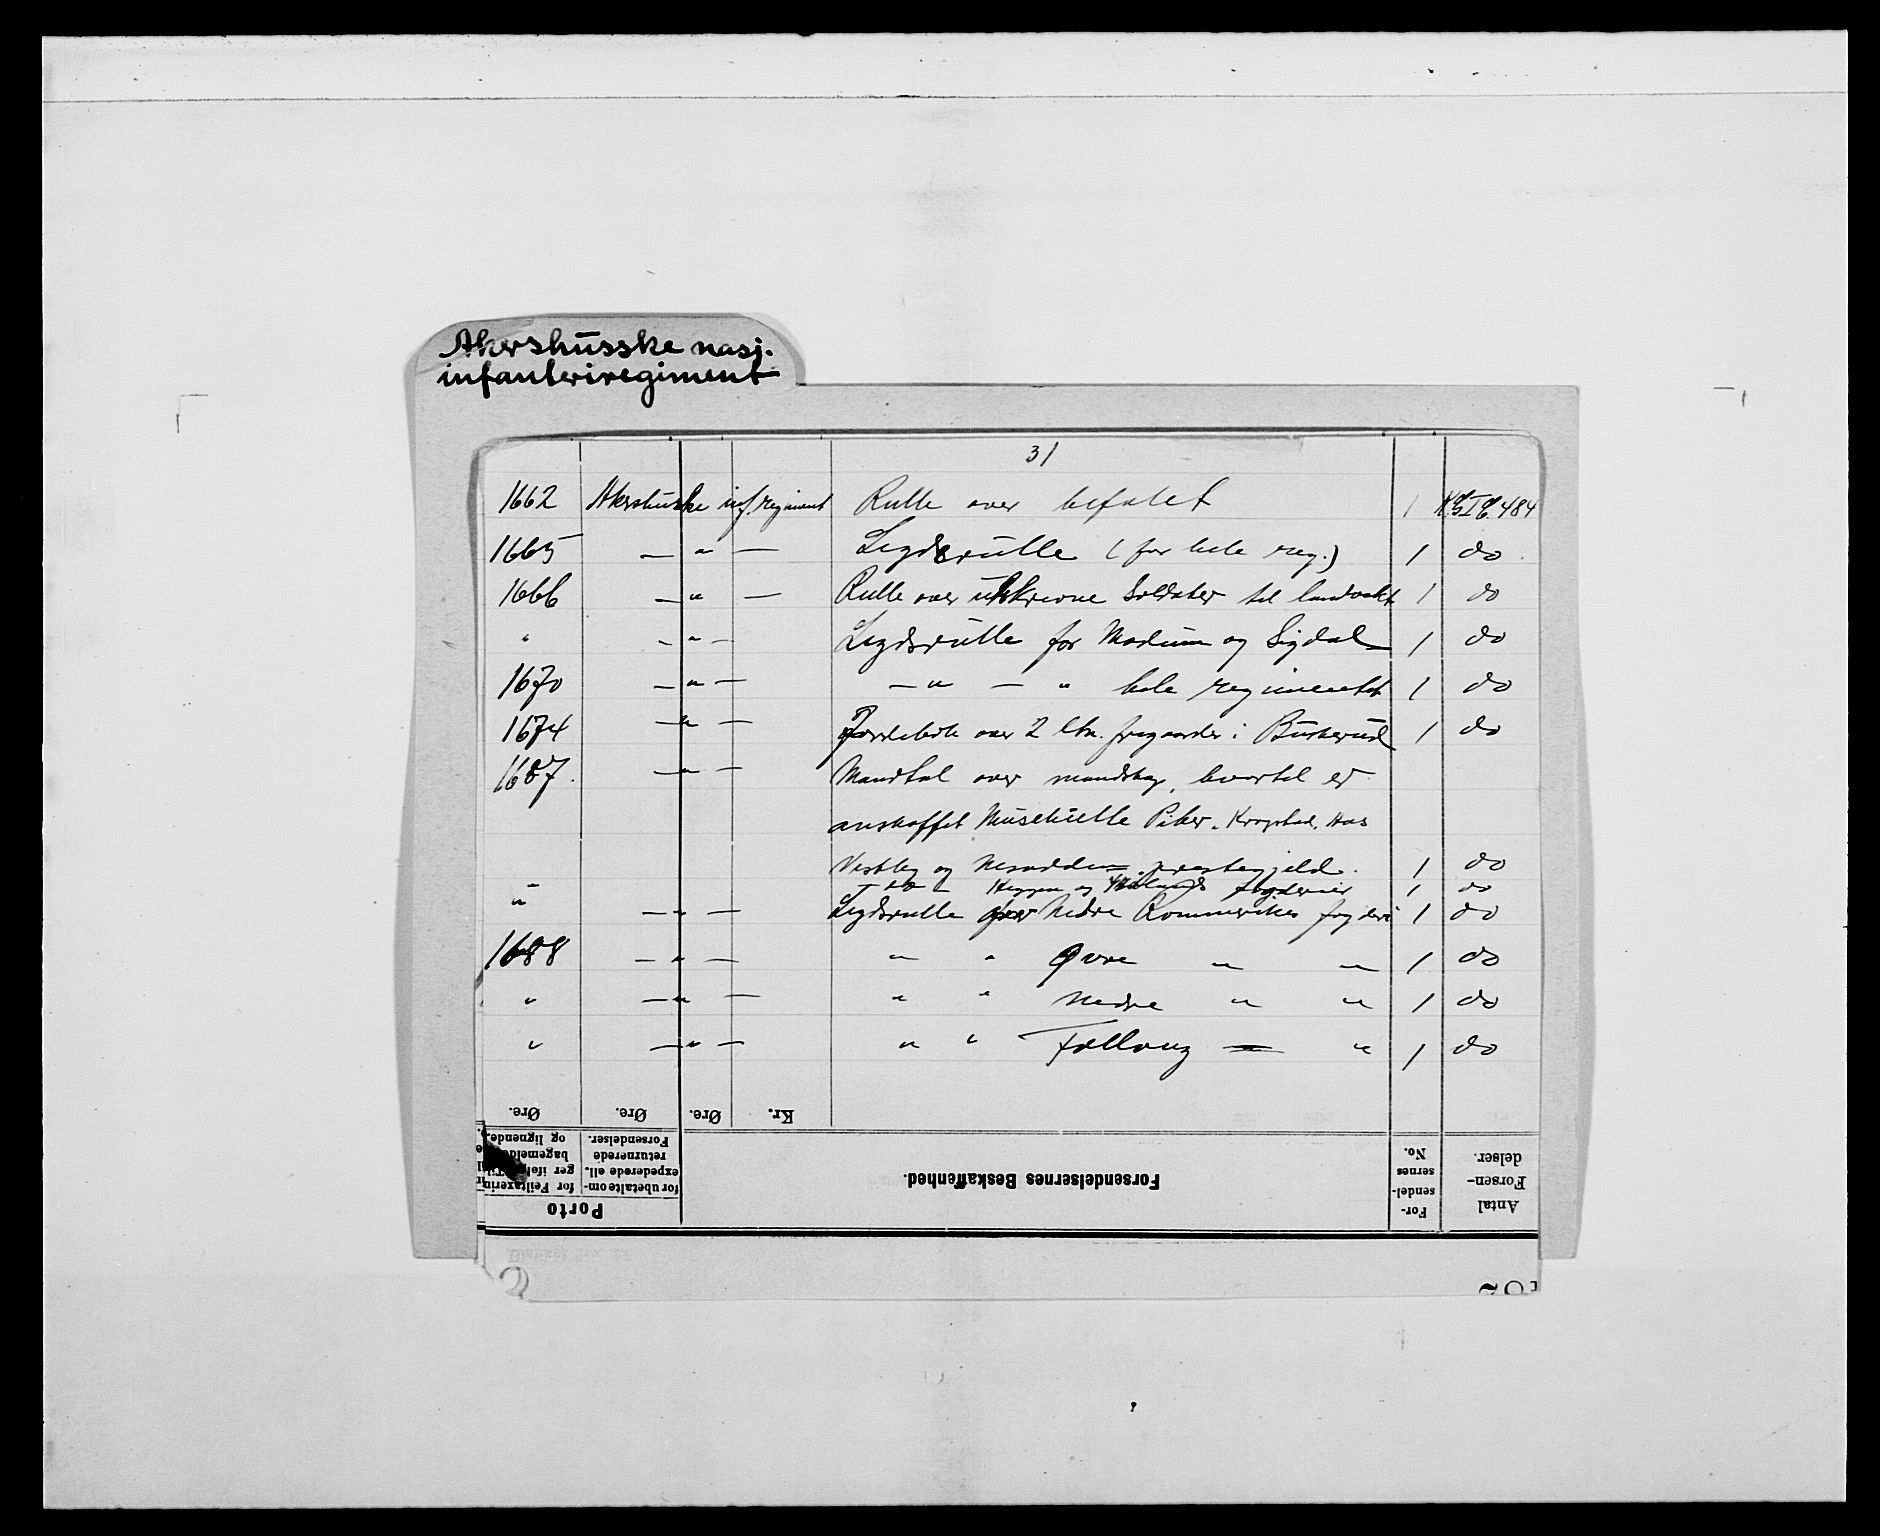 Akershusske nasj.
infanteriregiment
31
1662 Akershuske inf. regiment Rulle over befalet 1 484
1665 — " — Legdsrulle (for hele reg.) 1 do
1666 — " — Rulle over utskrevne Soldater til landvakt 1 do
" — " — Legdsrulle for Modum og Sigdal 1 do
1670 — " — — " — " hele regimentet 1 do
1674 — " — Jordebok over 2 ltn. frigaarder i Buskerud 1 do
1687. — " — Mandtal over mandskap, hvortil er
anskaffet Piker. Kragstad, Aas
Vestby og Nesodden prestegjeld. 1 do
" — do — Heggen og fogderier 1 do
— " — Legdsrulle over Nedre Romerikes fogderi 1 do
1688 — " — " " Øvre " " 1 do
" — " — " " Nedre " " 1 do
" — " — " " Folloug " 1 do
Øre. Øre. Øre. Kr.
og lignende. Forsendelser.
returnerede
expederede ell.
for Feiltaxerin for ubetalte om-
Porto
Forsendelsernes Beskaffenhed.
For-
sendel-
sernes
No.
Antal
Forsen-
delser.